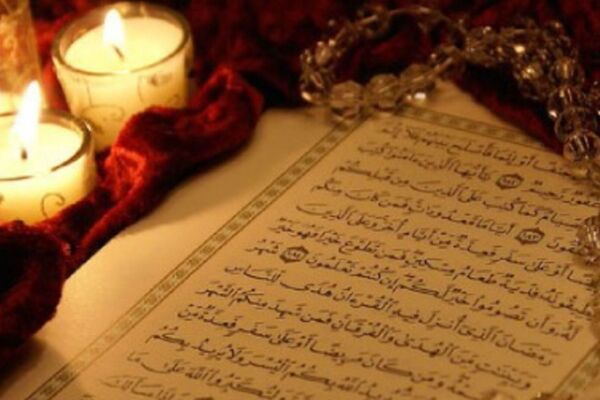 أَوْ إِثْمًا فَأَصْلَحَ بَيْنَهُمْ فَلَآ إِثْمَ
غَفُورٌ رَّحِيمٌ ١٨٢ يَٰٓأَيُّهَا ٱلَّذِينَ ءَامَنُوا۟ كُتِبَ
ٱلصِّيَامُ كَمَا كُتِبَ عَلَى ٱلَّذِينَ مِن قَبْلِكُمْ
١٨٣ أَيَّامًا مَّعْدُودَٰتٍ فَمَن كَانَ مِنكُم
أَوْ عَلَىٰ سَفَرٍ فَعِدَّةٌ مِّنْ أَيَّامٍ أُخَرَ وَعَلَى ٱلَّذِينَ
يُطِيقُونَهُۥ فِدْيَةٌ طَعَامُ مِسْكِينٍ فَمَن تَطَوَّعَ خَيْرًا فَهُوَ خَيْرٌ
لَّهُۥ وَأَن تَصُومُوا۟ خَيْرٌ لَّكُمْ إِن كُنتُمْ تَعْلَمُونَ ١٨٤ شَهْرُ
رَمَضَانَ ٱلَّذِىٓ أُنزِلَ فِيهِ ٱلْقُرْءَانُ هُدًى لِّلنَّاسِ
وَبَيِّنَٰتٍ مِّنَ ٱلْهُدَىٰ وَٱلْفُرْقَانِ فَمَن شَهِدَ مِنكُمُ ٱلشَّهْرَ
وَمَن كَانَ مَرِيضًا أَوْ عَلَىٰ سَفَرٍ فَعِدَّةٌ مِّنْ
يُرِيدُ ٱللَّهُ بِكُمُ ٱلْيُسْرَ وَلَا يُرِيدُ بِكُمُ
وَلِتُكَبِّرُوا۟ ٱللَّهَ عَلَىٰ مَا